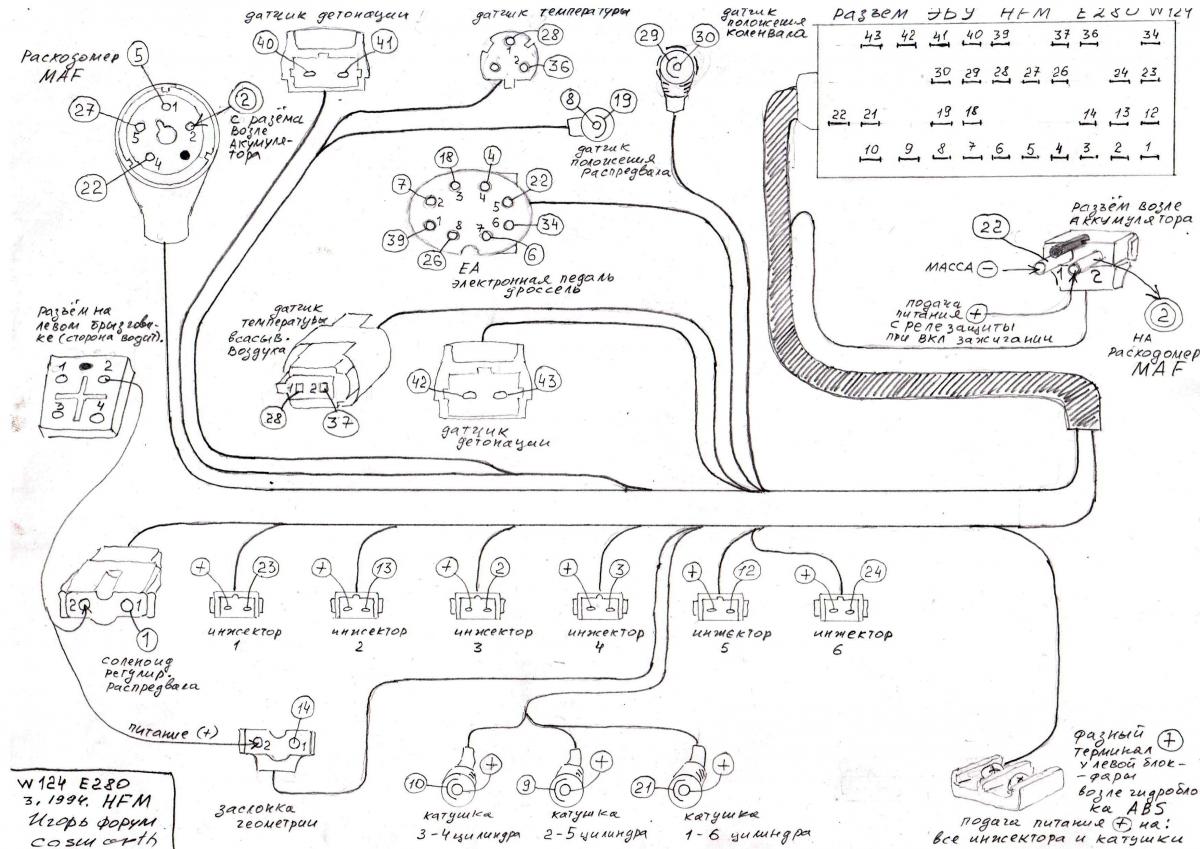 датчик детонации
40
41
датчик температуры
28
1
2
36
датчик
положения
коленвала
29
30
Разъём ЭБУ HFM E280 W124
43 42 41 40 39 37 36 34
30 29 28 27 26 24 23
22 21 19 18 14 13 12
10 9 8 7 6 5 4 3 2 1
Расходомер
MAF
5
27
2
22
1
2
5
4
с разъёма
возле
акумуля-
тора
8
19
датчик
положения
распредвала
18
4
7
22
39
34
26
6
3
4
2
5
1
6
8
7
EA
электронная педаль
дроссель
разъём возле
аккумулятора
22
масса −
1
2
подача
питания +
с реле защиты
при вкл зажигании
2
на
расходомер
MAF
разъём на
левом брызгови-
ке (сторона водит).
1
2
3
4
датчик
температуры
всасыв.
воздуха
1
2
28
37
42
43
датчик
детонации
2
1
1
соленоид
регулир.
распредвала
+ 23
инжектор
1
+ 13
инжектор
2
+ 2
инжектор
3
+ 3
инжектор
4
+ 12
инжектор
5
+ 24
инжектор
6
питание (+)
14
2
1
заслонка
геометрии
10 +
катушка
3-4 цилиндра
9 +
катушка
2-5 цилиндра
21 +
катушка
1-6 цилиндра
фазный +
терминал
у левой блок-
-фары
возле гидробло
ка ABS
+
+
подача питания + на:
все инжектора и катушки
W124 E280
3, 1994. HFM
Игорь форум
cosworth